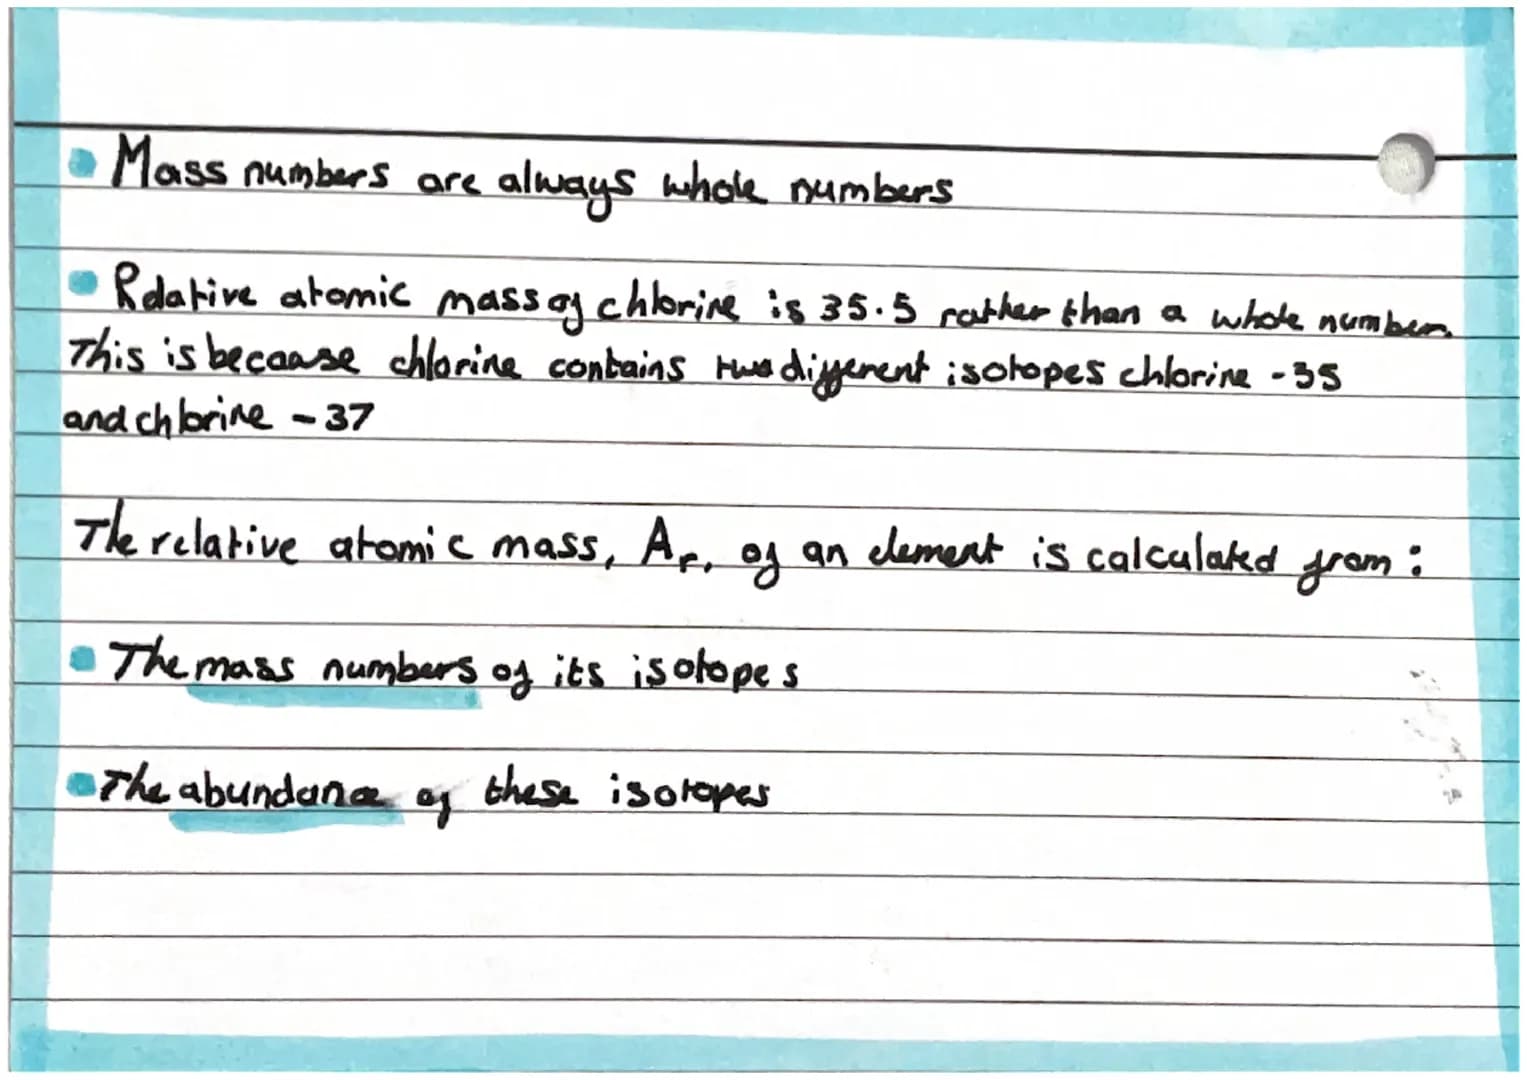 Mass numbers are always whole numbers
Relative atomic mass of chlorine is 35.5 rather than a whole number.
This is because chlorine contains two different isotopes chlorine -35
and chlorine - 37
The relative atomic mass, Ar, of an element is calculated from:
The mass numbers of its isotopes
The abundance of these isotopes